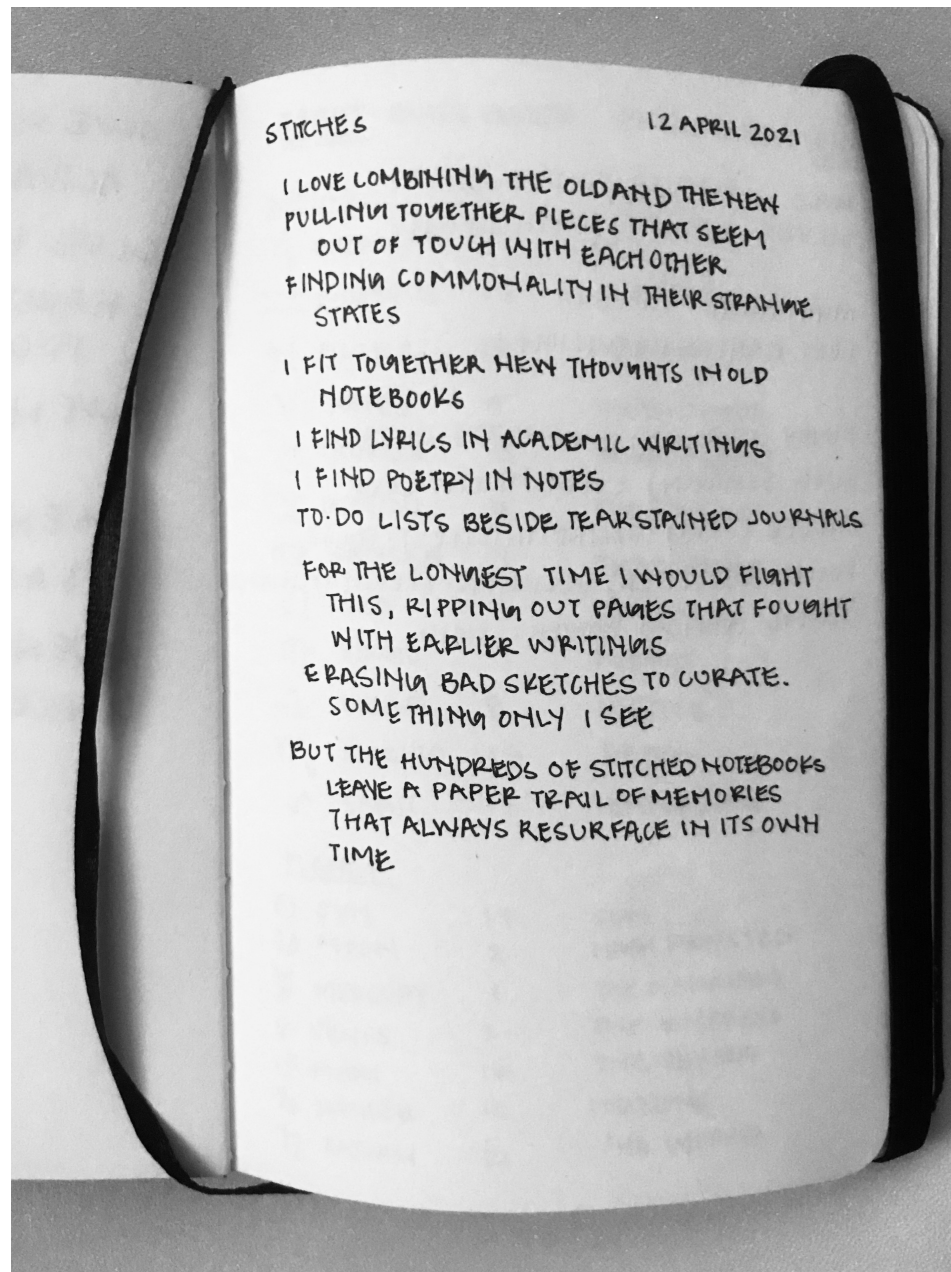 STITCHES 12 APRIL 2021
I LOVE COMBINING THE OLD AND THE NEW
PULLING TOGETHER PIECES THAT SEEM
OUT OF TOUCH WITH EACH OTHER
FINDING COMMONALITY IN THEIR STRANGE
STATES
I FIT TOGETHER NEW THOUGHTS IN OLD
NOTEBOOKS
I FIND LYRICS IN ACADEMIC WRITINGS
I FIND POETRY IN NOTES
TO-DO LISTS BESIDE TEAR STAINED JOURNALS
FOR THE LONGEST TIME I WOULD FIGHT
THIS, RIPPING OUT PAGES THAT FOUGHT
WITH EARLIER WRITINGS
ERASING BAD SKETCHES TO CURATE.
SOMETHING ONLY I SEE
BUT THE HUNDREDS OF STITCHED NOTEBOOKS
LEAVE A PAPER TRAIL OF MEMORIES
THAT ALWAYS RESURFACE IN ITS OWN
TIME